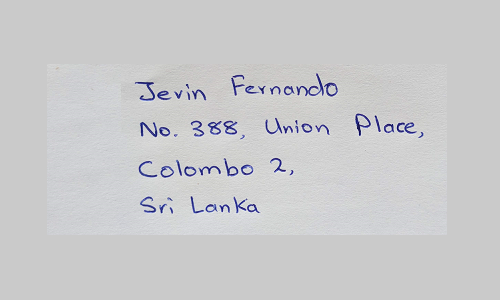 Jevin Fernando
No. 388, Union Place,
Colombo 2,
Sri Lanka